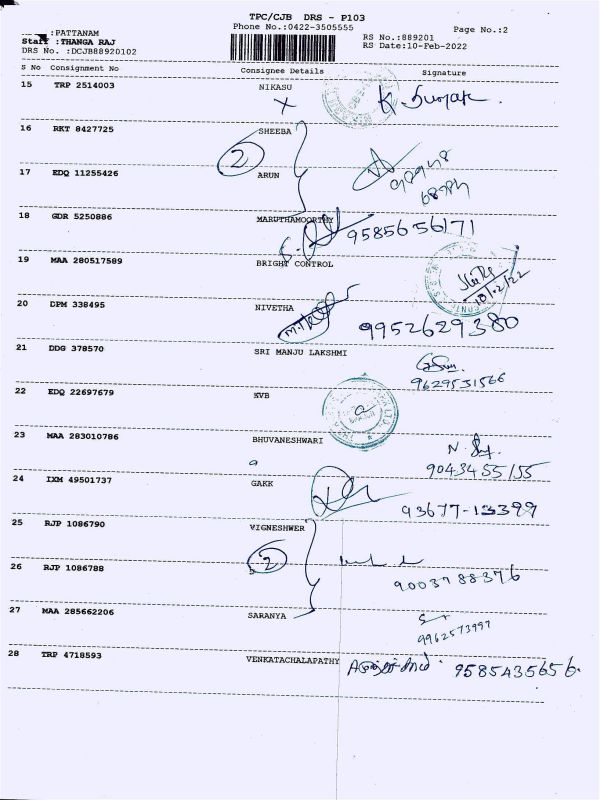 TPC/CJB DRS - P103
:PATTANAM
Phone No.:0422-3505555
Page No.:2
Staff :THANGA RAJ
RS No.:889201
DRS No. :DCJB88920102
RS Date:10-Feb-2022
S No Consignment No Consignee Details Signature
15 TRP 2514003 NIKASU
K. Suman.
16 RKT 8427725 SHEEBA
2
17 EDQ 11255426 ARUN
18 GDR 5250886 MARUTHAMOORTHY
9585656171
19 MAA 280517589 BRIGHT CONTROL
10/02/22
20 DPM 338495 NIVETHA
9952629380
21 DDG 378570 SRI MANJU LAKSHMI
9629531566
22 EDQ 22697679 KVB
23 MAA 283010786 BHUVANESHWARI
9043455155
24 IXM 49501737 GAKK
93677-13399
25 RJP 1086790 VIGNESHWER
2
26 RJP 1086788
9003788376
27 MAA 285662206 SARANYA
9962573997
28 TRP 4718593 VENKATACHALAPATHY
9585435656.